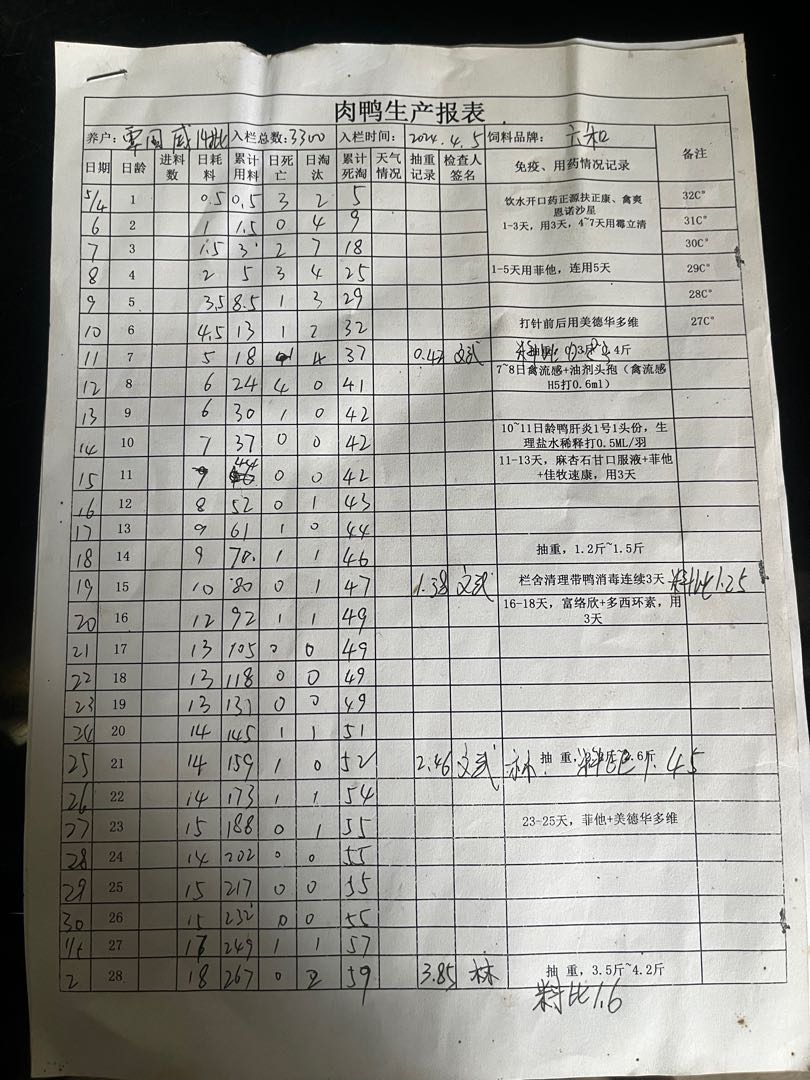 肉鸭生产报表
养户: 覃国威14批 入栏总数:3300 入栏时间: 2024.4.5 饲料品牌: 六和
日期 日龄 进料数 日耗料 累计用料 日死亡 日淘汰 累计死淘 天气情况 抽重记录 检查人签名 免疫、用药情况记录 备注
5/4 1 0.5 0.5 3 2 5 饮水开口药正源扶正康、禽爽恩诺沙星 32C°
6 2 1 1.5 0 4 9 1-3天,用3天,4~7天用霉立清 31C°
7 3 1.5 3 2 7 18 30C°
8 4 2 5 3 4 25 1-5天用菲他,连用5天 29C°
9 5 3.5 8.5 1 3 29 28C°
10 6 4.5 13 1 2 32 打针前后用美德华多维 27C°
11 7 5 18 1 4 37 0.42 文武 抽重
12 8 6 24 4 0 41 7~8日禽流感+油剂头孢(禽流感H5打0.6ml)
13 9 6 30 1 0 42
14 10 7 37 0 0 42 10~11日龄鸭肝炎1号1头份,生理盐水稀释打0.5ML/羽
15 11 44 0 0 42 11-13天,麻杏石甘口服液+菲他+佳牧速康,用3天
16 12 8 52 0 1 43
17 13 9 61 1 0 44
18 14 9 70 1 1 46 抽重,1.2斤~1.5斤
19 15 10 80 0 1 47 1.38 文武 栏舍清理带鸭消毒连续3天 料比1.25
20 16 12 92 1 1 49 16-18天,富络欣+多西环素,用3天
21 17 13 105 0 0 49
22 18 13 118 0 0 49
23 19 13 131 0 0 49
24 20 14 145 1 1 51
25 21 14 159 1 0 52 2.46 文武 林 抽 重, 料比1.45
26 22 14 173 1 1 54
27 23 15 188 0 1 55 23-25天,菲他+美德华多维
28 24 14 202 0 0 55
29 25 15 217 0 0 55
30 26 15 232 0 0 55
1/5 27 17 249 1 1 57
2 28 18 267 0 2 59 3.85 林 抽 重,3.5斤~4.2斤
料比1.6